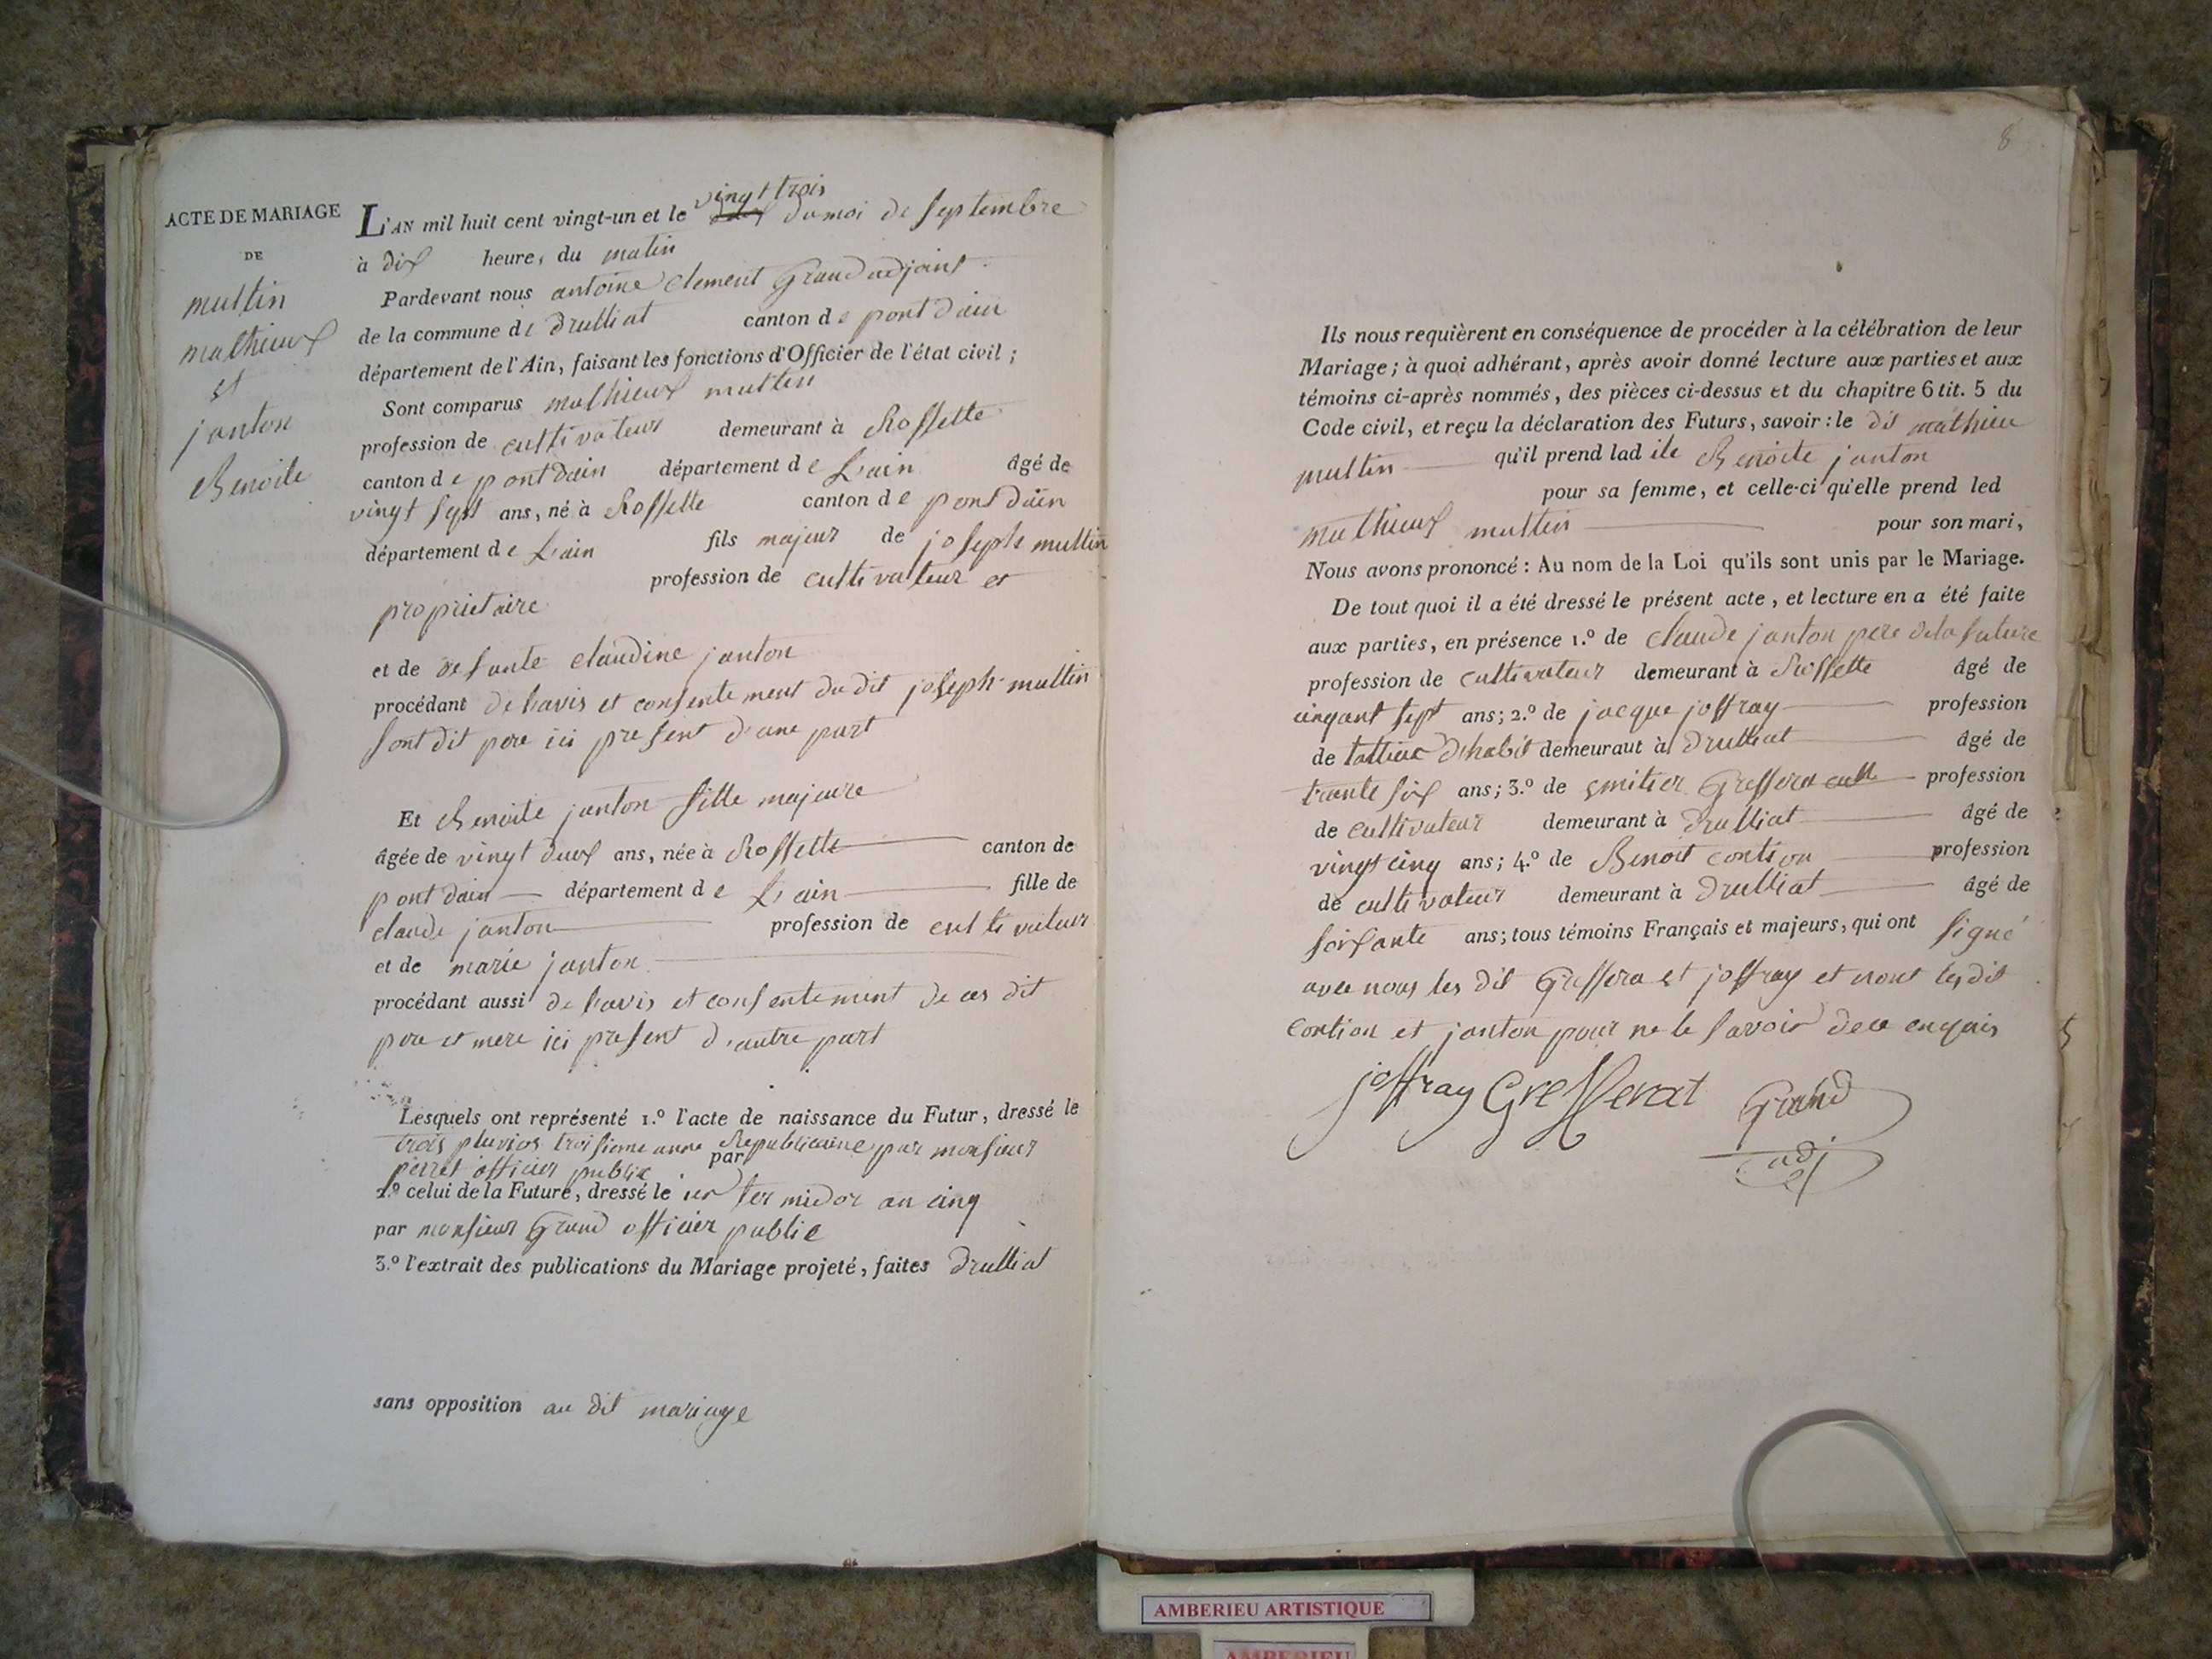 8
ACTE DE MARIAGE
DE
multin
mathieux
et
janton
Benoite
L'AN mil huit cent vingt-un et le vingt trois du moi de septembre
à dix heures du matin
Pardevant nous antoine clement Grand adjoint
de la commune de druilliat canton de pont dain
département de l'Ain, faisant les fonctions d'Officier de l'état civil ;
Sont comparus mathieux multin
profession de cultivateur demeurant à Rossette
canton de pont dain département de L'ain âgé de
vingt sept ans, né à Rossette canton de pont dain
département de L'ain fils majeur de joseph multin
profession de cultivateur et
proprietaire
et de defunte claudine janton
procédant de lavis et consentement du dit joseph multin
sont dit pere ici present d'une part
Et Benoite janton fille majeure
âgée de vingt deux ans, née à Rossette canton de
pont dain département de L'ain fille de
claude janton profession de cultivateur
et de marie janton
procédant aussi de lavis et consentement de ces dit
pere et mere ici present d'autre part
Lesquels ont représenté 1.º l'acte de naissance du Futur, dressé le
trois pluvios troisieme anne Republicaine par monsieur
perret officier public par
2.º celui de la Future, dressé le ter midor an cinq
par monsieur Grand officier public
3.º l'extrait des publications du Mariage projeté, faites druilliat
sans opposition au dit mariage
Ils nous requièrent en conséquence de procéder à la célébration de leur
Mariage ; à quoi adhérant, après avoir donné lecture aux parties et aux
témoins ci-après nommés, des pièces ci-dessus et du chapitre 6 tit. 5 du
Code civil, et reçu la déclaration des Futurs, savoir : le dit mathieu
multin qu'il prend lad ite Benoite janton
pour sa femme, et celle-ci qu'elle prend led
mathieux multin pour son mari,
Nous avons prononcé : Au nom de la Loi qu'ils sont unis par le Mariage.
De tout quoi il a été dressé le présent acte, et lecture en a été faite
aux parties, en présence 1.º de claude janton pere de la future
profession de cultivateur demeurant à Rossette âgé de
cinqant sept ans ; 2.º de jacque joffray profession
de tallieur d'habit demeuraut à druilliat âgé de
trante six ans ; 3.º de Gresserat profession
de cultivateur demeurant à druilliat âgé de
vingt cinq ans ; 4.º de Benoit contion profession
de cultivateur demeurant à druilliat âgé de
soixante ans ; tous témoins Français et majeurs, qui ont signé
avec nous les dit Gressera et joffray et nont les dit
contion et janton pour ne le savoir de ce enquis
joffray Gresserat Grand
adj
AMBERIEU ARTISTIQUE
AMBERIEU